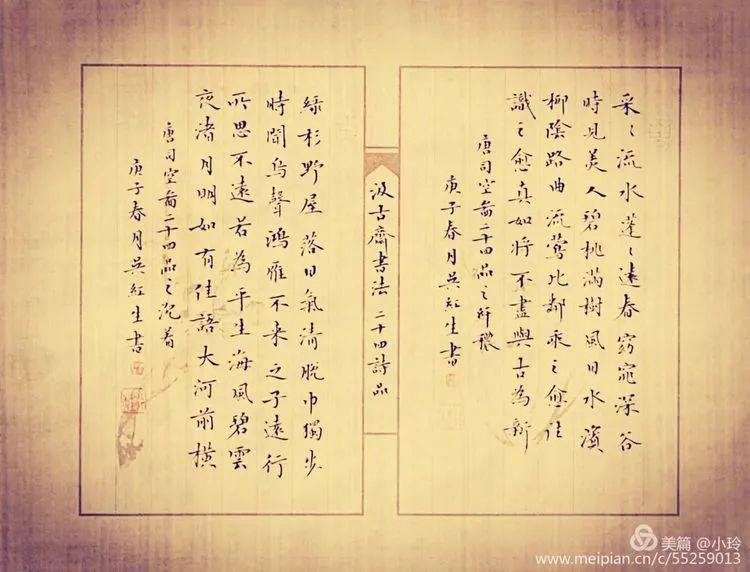 采〻流水蓬〻遠春窈窕深谷
時見美人碧桃滿樹風日水濱
柳陰路曲流鶯比鄰乘之愈往
識之愈真如將不盡與古為新
唐司空圖二十四品之纤穠
庚子春月吳紅生書
汲古齋書法 二十四詩品
綠杉野屋落日氣清脫巾獨步
時聞鳥聲鴻雁不来之子遠行
所思不遠若為平生海風碧雲
夜渚月明如有佳語大河前橫
唐司空圖二十四品之沉着
庚子春月吳紅生書
美篇 @小玲
www.meipian.cn/c/55259013